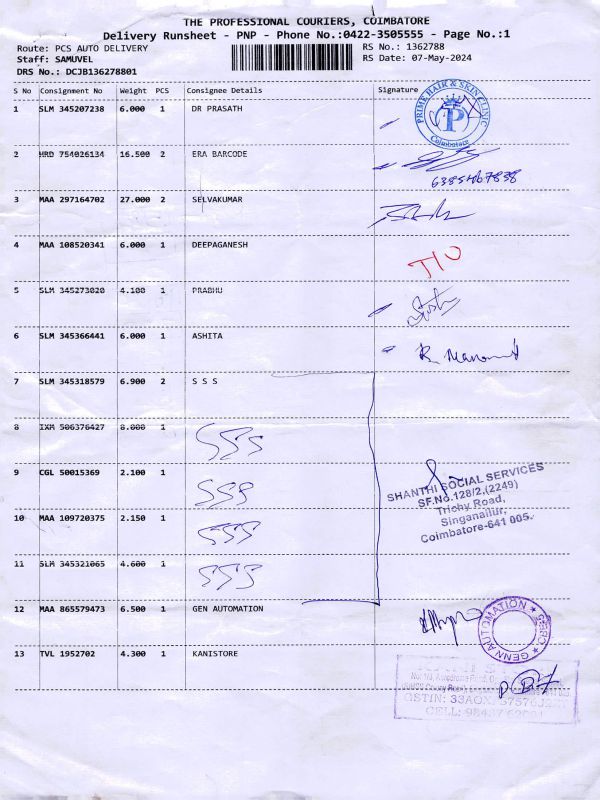 THE PROFESSIONAL COURIERS, COIMBATORE
Delivery Runsheet - PNP - Phone No.:0422-3505555 - Page No.:1
Route: PCS AUTO DELIVERY RS No.: 1362788
Staff: SAMUVEL RS Date: 07-May-2024
DRS No.: DCJB136278801
S No Consignment No Weight PCS Consignee Details Signature
1 SLM 345207238 6.000 1 DR PRASATH
PRIME HAIR & SKIN CLINIC
P
Coimbatore
2 HRD 754026134 16.500 2 ERA BARCODE
3 MAA 297164702 27.000 2 SELVAKUMAR
4 MAA 108520341 6.000 1 DEEPAGANESH
5 SLM 345273020 4.100 1 PRABHU
6 SLM 345366441 6.000 1 ASHITA
7 SLM 345318579 6.900 2 S S S
8 IXM 506376427 8.000 1 SSS
9 CGL 50015369 2.100 1 SSS
SHANTHI SOCIAL SERVICES
SF.No.128/2,(2249)
Trichy Road,
Singanallur,
Coimbatore-641 005.
10 MAA 109720375 2.150 1 SSS
11 SLM 345321065 4.600 1 SSS
12 MAA 865579473 6.500 1 GEN AUTOMATION
GENN AUTOMATION
13 TVL 1952702 4.300 1 KANISTORE